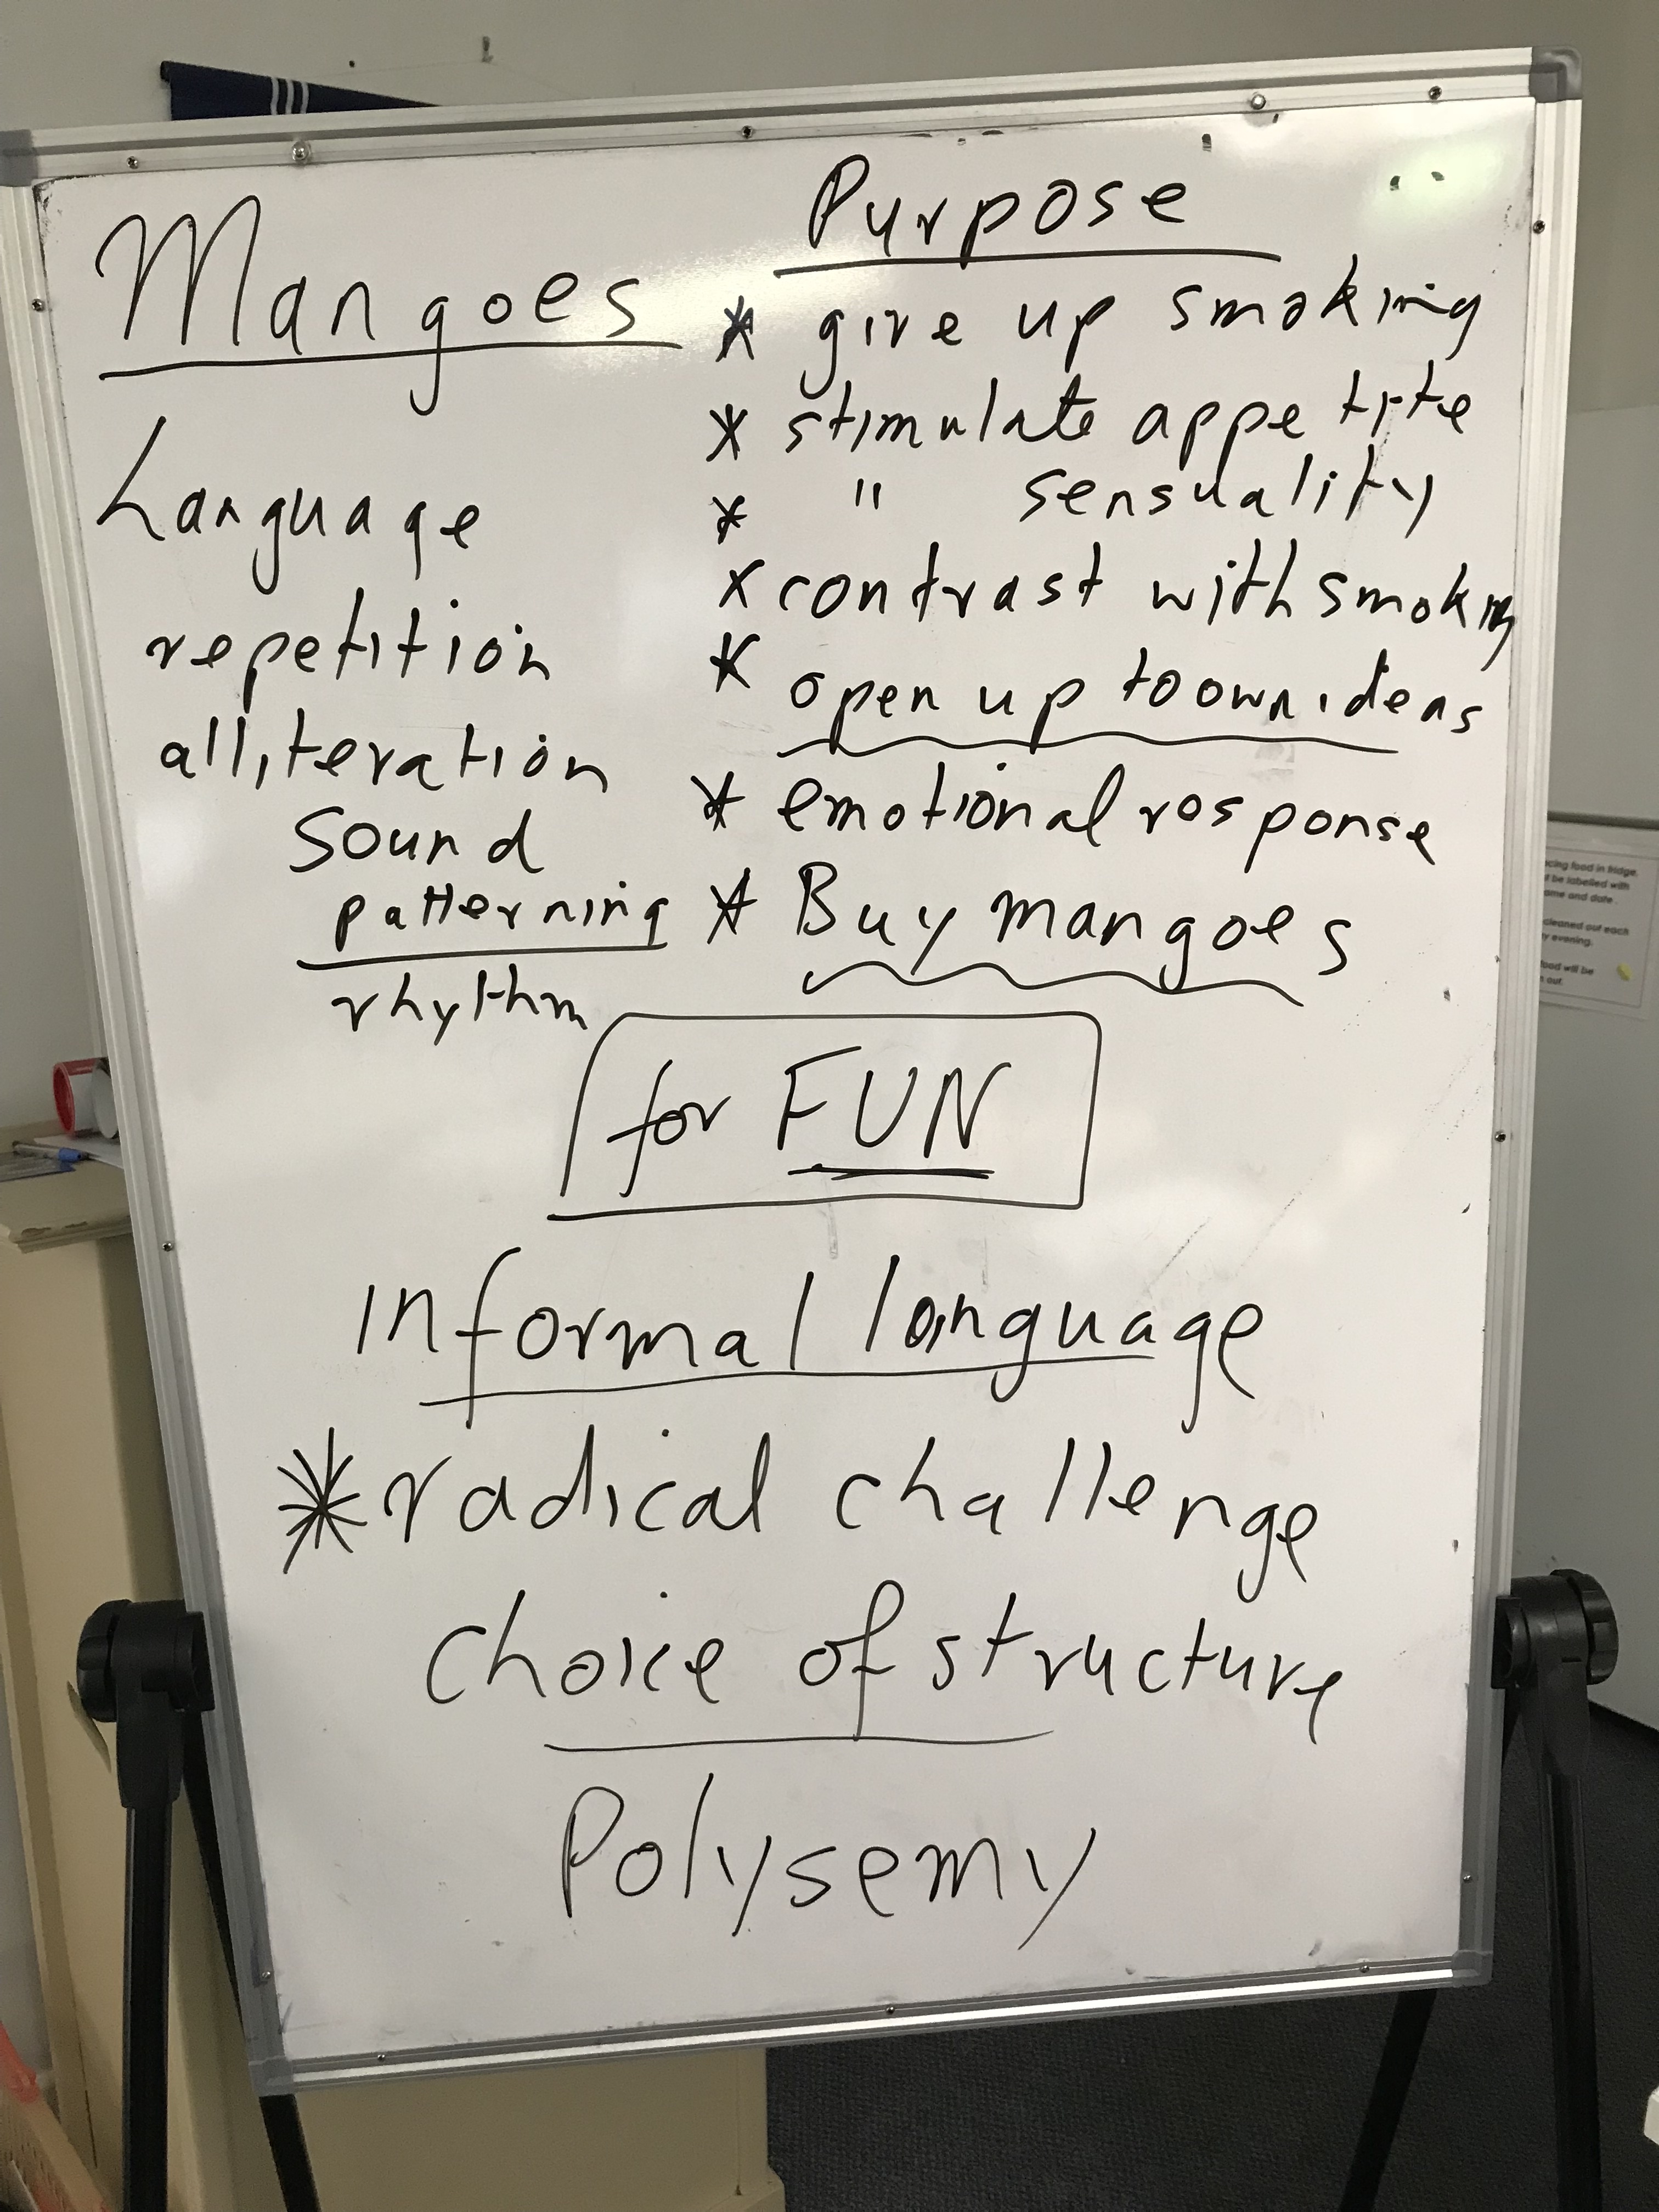 Mangoes
Language
repetition
alliteration
Sound
patterning
rhythm
Purpose
* give up smoking
* stimulate appetite
* " sensuality
x contrast with smoking
* open up to own ideas
* emotional response
* Buy mangoes
for FUN
informal language
* radical challenge
choice of structure
Polysemy
cing food in fridge.
be labelled with
ame and date.
cleaned out each
y evening.
food will be
out.